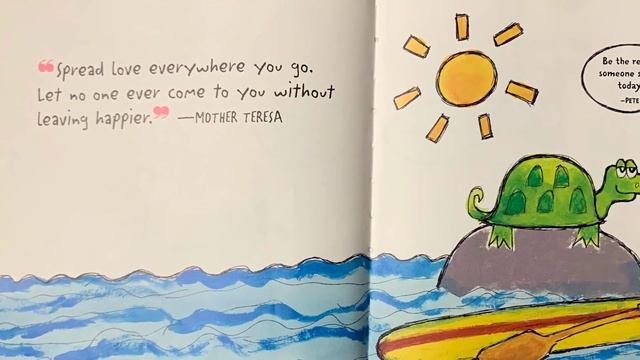 “Spread love everywhere you go.
Let no one ever come to you without
leaving happier.” —MOTHER TERESA
Be the
someone
today
—PETE